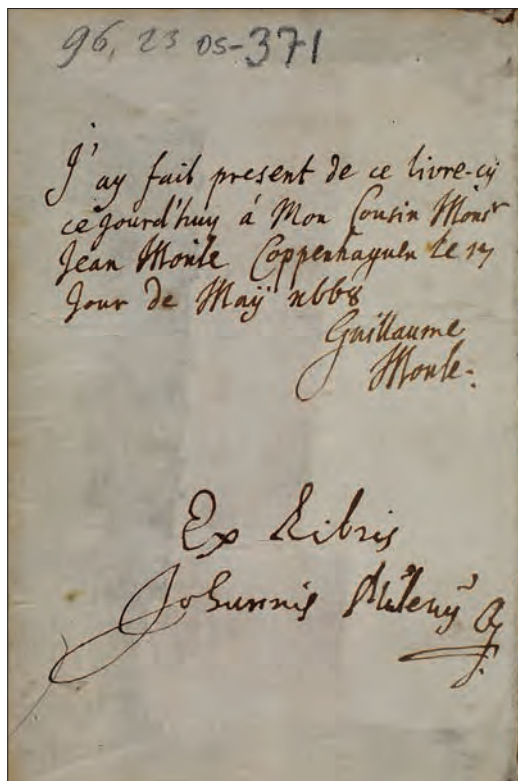 96, 23 os-371
J'ay fait present de ce livre-cy
cejourd'huy à Mon Cousin Monsr
Jean Monle Coppenhaguen Le 17
Jour de Maÿ 1668
Guillaume
Monle.
Ex Libris
Johannis